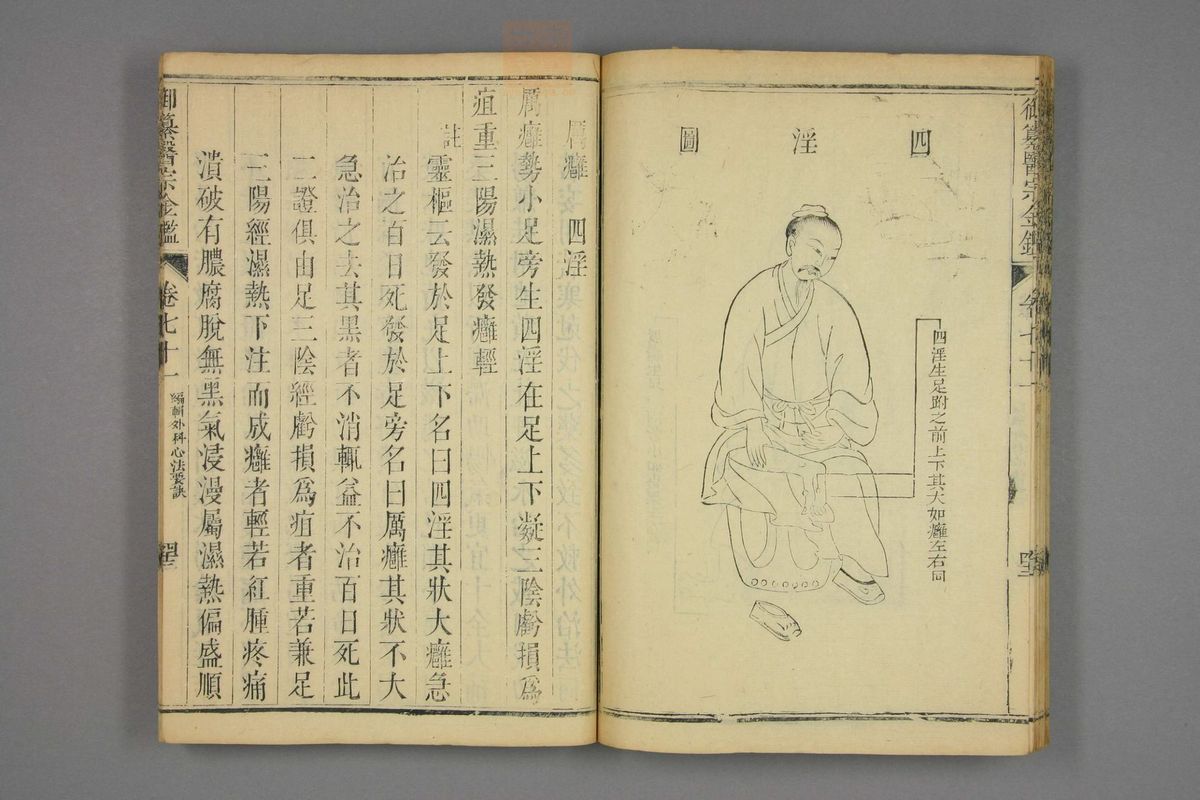 御纂醫宗金鑑
卷七十一
四淫圖
四淫生足跗之前上下其大如癰左右同
厲癰 四淫
厲癰勢小足旁生四淫在足上下凝三陰虧損爲
疽重三陽濕熱發癰輕
註
靈樞云發於足上下名曰四淫其狀大癰急
治之百日死發於足旁名曰厲癰其狀不大
急治之去其黑者不消輒益不治百日死此
二證俱由足三陰經虧損爲疽者重若兼足
三陽經濕熱下注而成癰者輕若紅腫疼痛
潰破有膿腐脫無黑氣浸漫屬濕熱偏盛順
御纂醫宗金鑑
卷七十一
編輯外科心法要訣